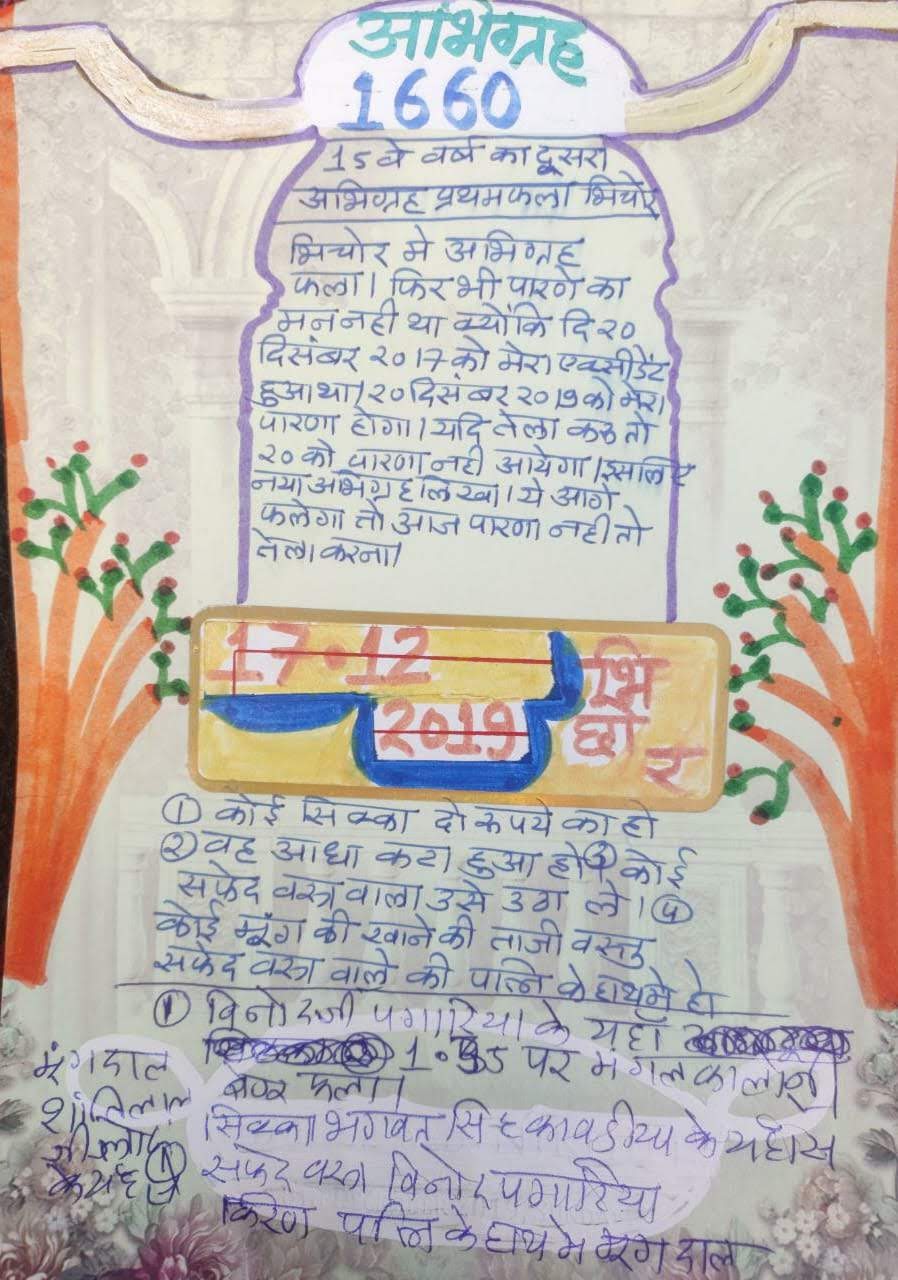 अभिग्रह
1660
15वे वर्ष का दूसरा
अभिग्रह प्रथमफला भिचोर
भिचोर मे अभिग्रह
फला। फिर भी पारणे का
मन नही था क्योंकि दि २०
दिसंबर २०17 को मेरा एक्सीडेंट
हुआ था। २० दिसंबर २०19 को मेरा
पारणा होगा। यदि तेला करु तो
२० को पारणा नही आयेगा। इसलिए
नया अभिग्रह लिखा। ये आगे
फलेगा तो आज पारणा नही तो
तेला करना।
17.12
2019
भि
छो
र
① कोई सिक्का दो रुपये का हो
② वह आधा कटा हुआ हो ③ कोई
सफेद वस्त्र वाला उसे उठा ले। ④
कोई मूंग की खाने की ताजी वस्तु
सफेद वस्त्र वाले की पत्नि के हाथ मे हो
① विनोदजी पगारिया के यहाँ
1.35 पर मंगल का
फला।
मूंगदाल
शांतिलाल
के यहाँ
सिक्का भगवत सिंह कावडीया के यहाँ से
① सफेद वस्त्र विनोद पगारिया
किरण पत्नि के हाथ मे मूंग दाल